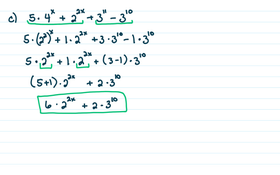 c) 5·4ˣ + 2²ˣ + 3¹¹ − 3¹⁰
5·(2²)ˣ + 1·2²ˣ + 3·3¹⁰ − 1·3¹⁰
5·2²ˣ + 1·2²ˣ + (3−1)·3¹⁰
(5+1)·2²ˣ + 2·3¹⁰
6·2²ˣ + 2·3¹⁰